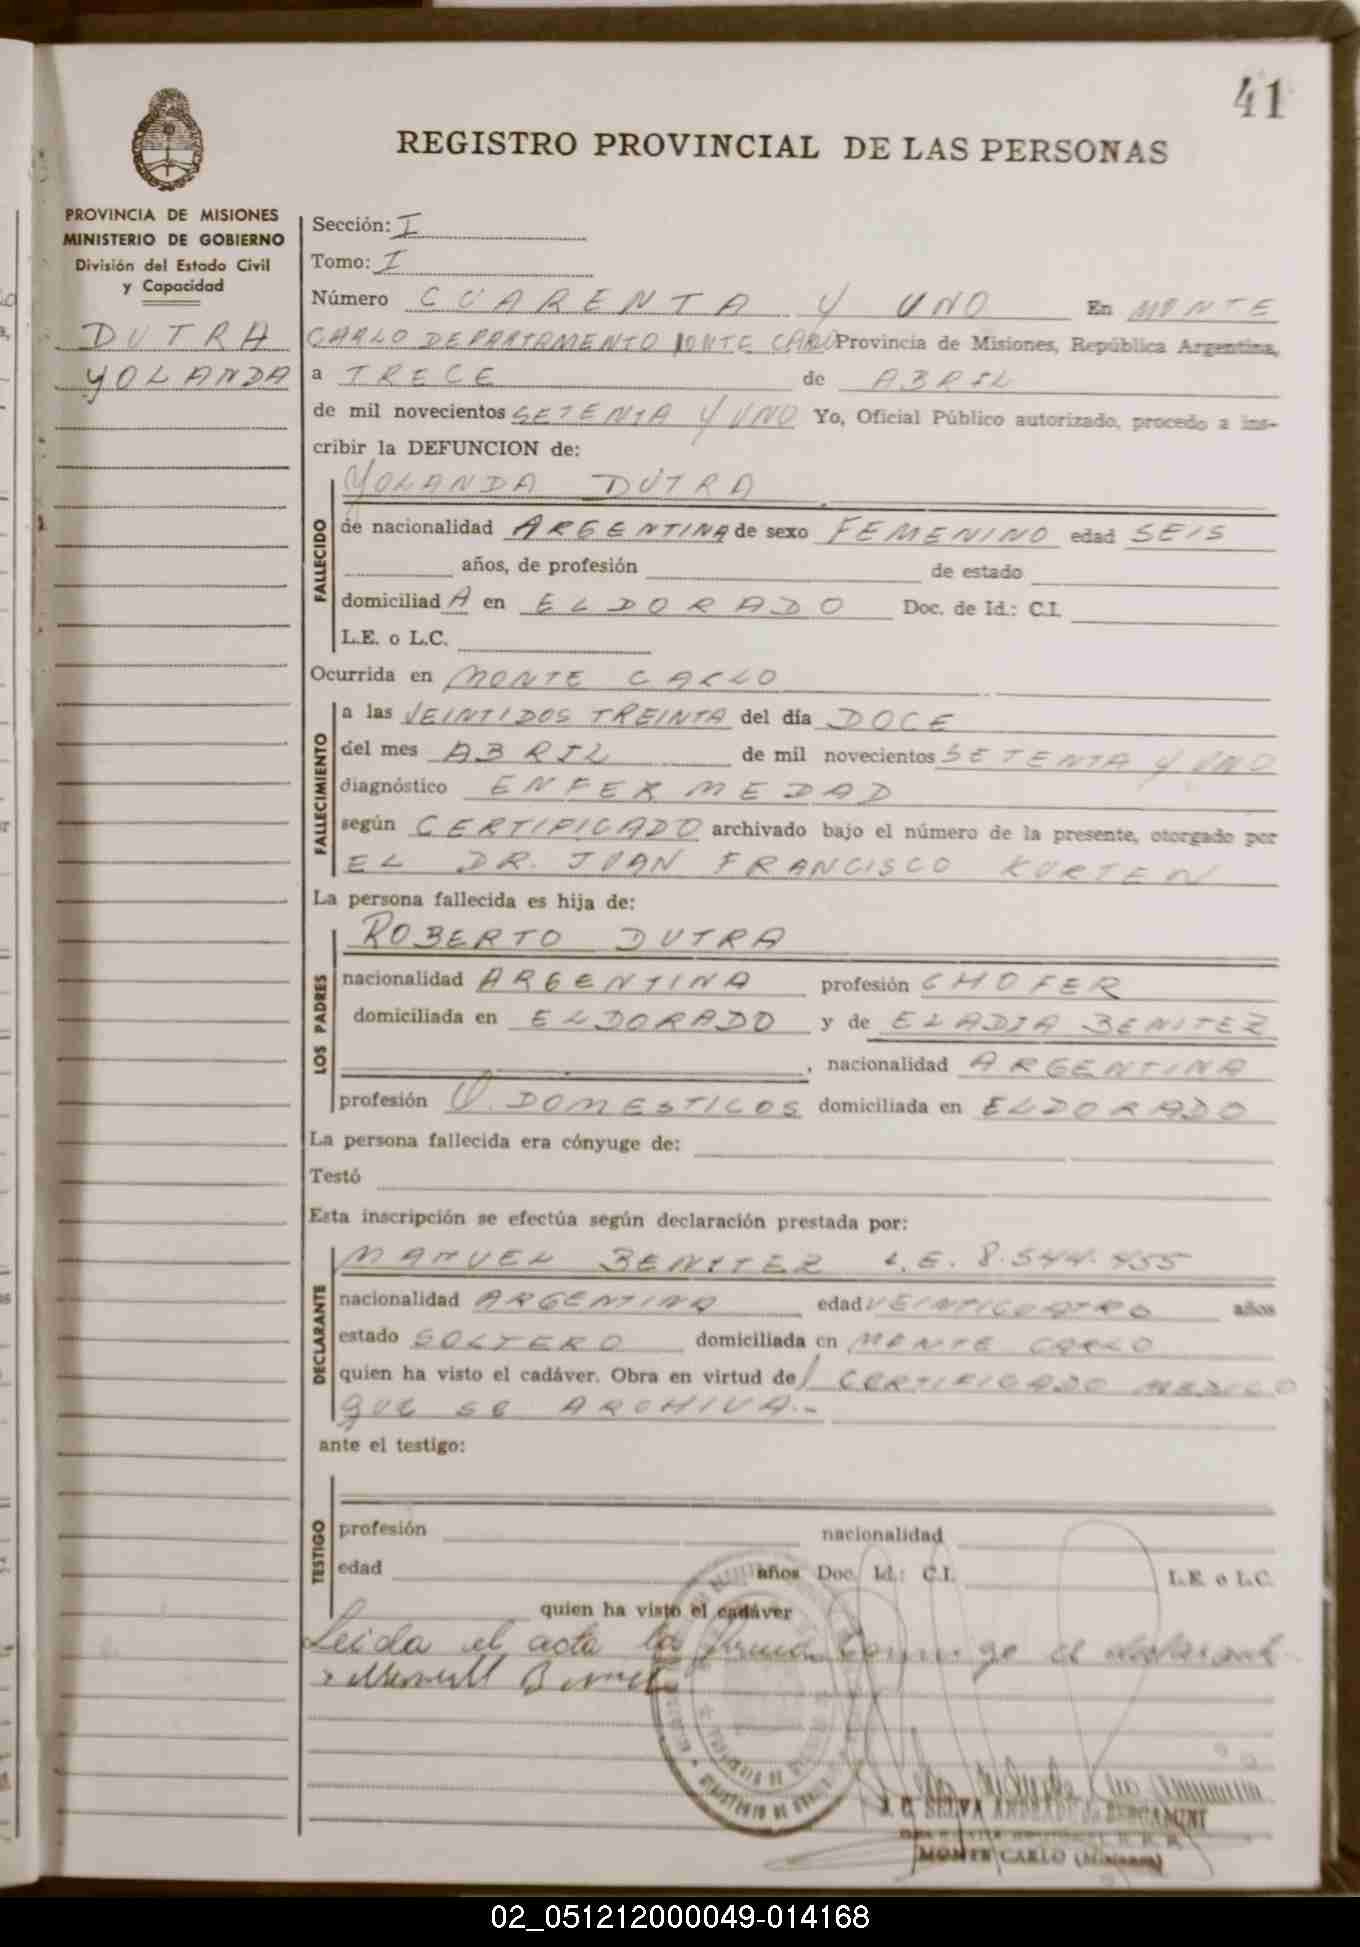 41
REGISTRO PROVINCIAL DE LAS PERSONAS
PROVINCIA DE MISIONES
MINISTERIO DE GOBIERNO
División del Estado Civil
y Capacidad
DUTRA
YOLANDA
Sección: I
Tomo: I
Número CUARENTA Y UNO En MONTE
CARLO DEPARTAMENTO MONTE CARLO Provincia de Misiones, República Argentina,
a TRECE de ABRIL
de mil novecientos SETENTA Y UNO Yo, Oficial Público autorizado, procedo a ins-
cribir la DEFUNCION de:
YOLANDA DUTRA
FALLECIDO
de nacionalidad ARGENTINA de sexo FEMENINO edad SEIS
años, de profesión de estado
domiciliad A en ELDORADO Doc. de Id.: C.I.
L.E. o L.C.
Ocurrida en MONTE CARLO
FALLECIMIENTO
a las VEINTIDOS TREINTA del día DOCE
del mes ABRIL de mil novecientos SETENTA Y UNO
diagnóstico ENFERMEDAD
según CERTIFICADO archivado bajo el número de la presente, otorgado por
EL DR. JUAN FRANCISCO KURTEN
La persona fallecida es hija de:
LOS PADRES
ROBERTO DUTRA
nacionalidad ARGENTINA profesión CHOFER
domiciliada en ELDORADO y de ELADIA BENITEZ
, nacionalidad ARGENTINA
profesión Q. DOMESTICOS domiciliada en ELDORADO
La persona fallecida era cónyuge de:
Testó
Esta inscripción se efectúa según declaración prestada por:
DECLARANTE
MANUEL BENITEZ L.E. 8.544.455
nacionalidad ARGENTINA edad VEINTICUATRO años
estado SOLTERO domiciliada en MONTE CARLO
quien ha visto el cadáver. Obra en virtud de CERTIFICADO MEDICO
QUE SE ARCHIVA.-
ante el testigo:
TESTIGO
profesión nacionalidad
edad años Doc. Id.: C.I. L.E. o L.C.
quien ha visto el cadáver
Leida el acta la firma conmigo el declarante
SELVA ANDRADE de BERGAMINI
MONTE CARLO (Misiones)
02_051212000049-014168